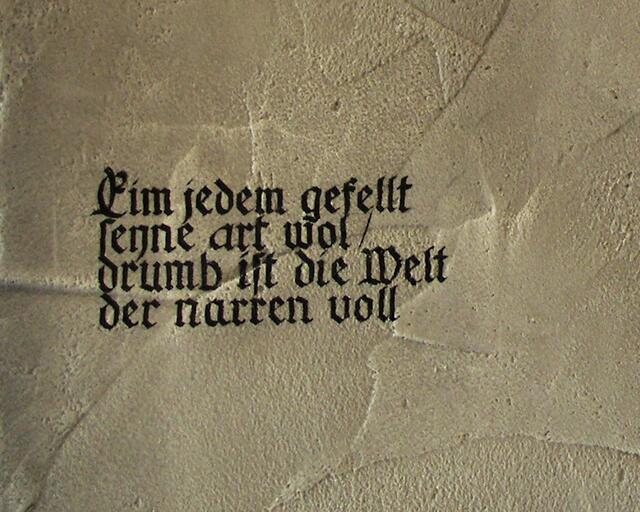 Eim jedem gefellt
seyne art wol /
drumb ist die Welt
der narren voll